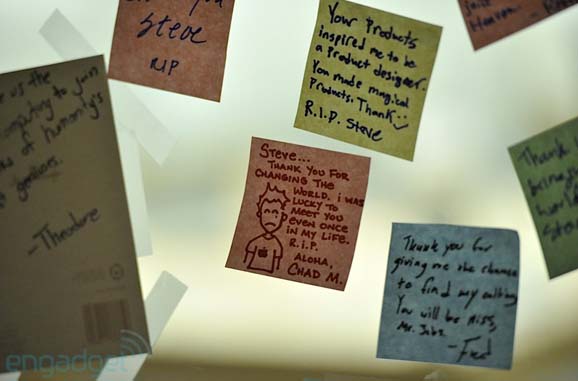 Steve
RIP
Your Products
inspired me to be
a Product designer.
You made magical
Products. Thank..
R.I.P. Steve
us the
computing to join
of humanity's
geniuses.
-Theodore
STEVE...
THANK YOU FOR
CHANGING THE
WORLD. I WAS
LUCKY TO
MEET YOU
EVEN ONCE
IN MY LIFE.
R.I.P.
ALOHA,
CHAD M.
Thank you for
giving me the chance
to find my calling
You will be miss,
Mr. Jobs.
-Fred
Thank
bringing
world
Steve
engadget